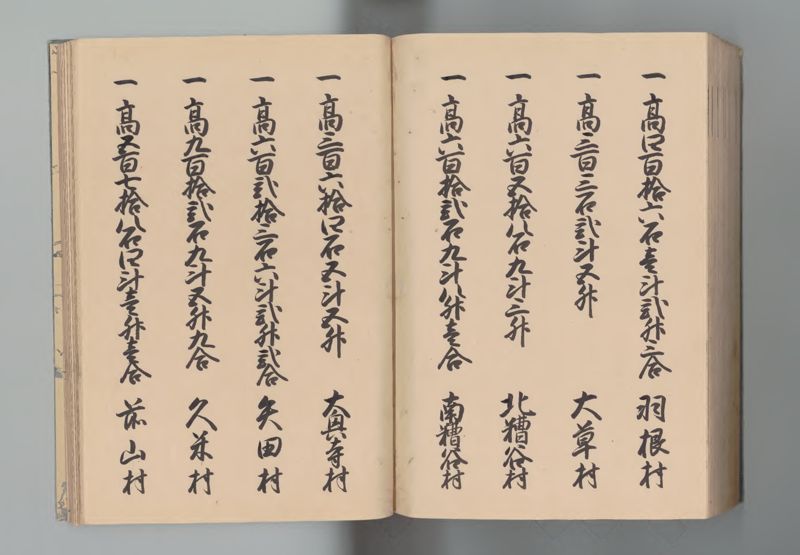 一高四百拾六石壱斗弐升三合 羽根村
一高三百三石弐斗五升 大草村
一高六百五拾八石九斗三升 北糟谷村
一高六百拾弐石九斗八升壱合 南糟谷村
一高三百六拾四石五斗五升 大興寺村
一高六百弐拾三石六斗弐升弐合 矢田村
一高九百拾弐石九斗五升九合 久米村
一高五百七拾八石四斗壱升壱合 前山村